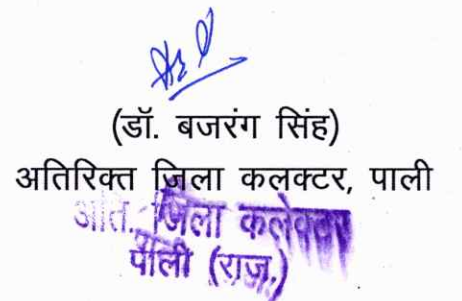 (डॉ. बजरंग सिंह)
अतिरिक्त जिला कलक्टर, पाली
अति. जिला कलेक्टर
पाली (राज.)